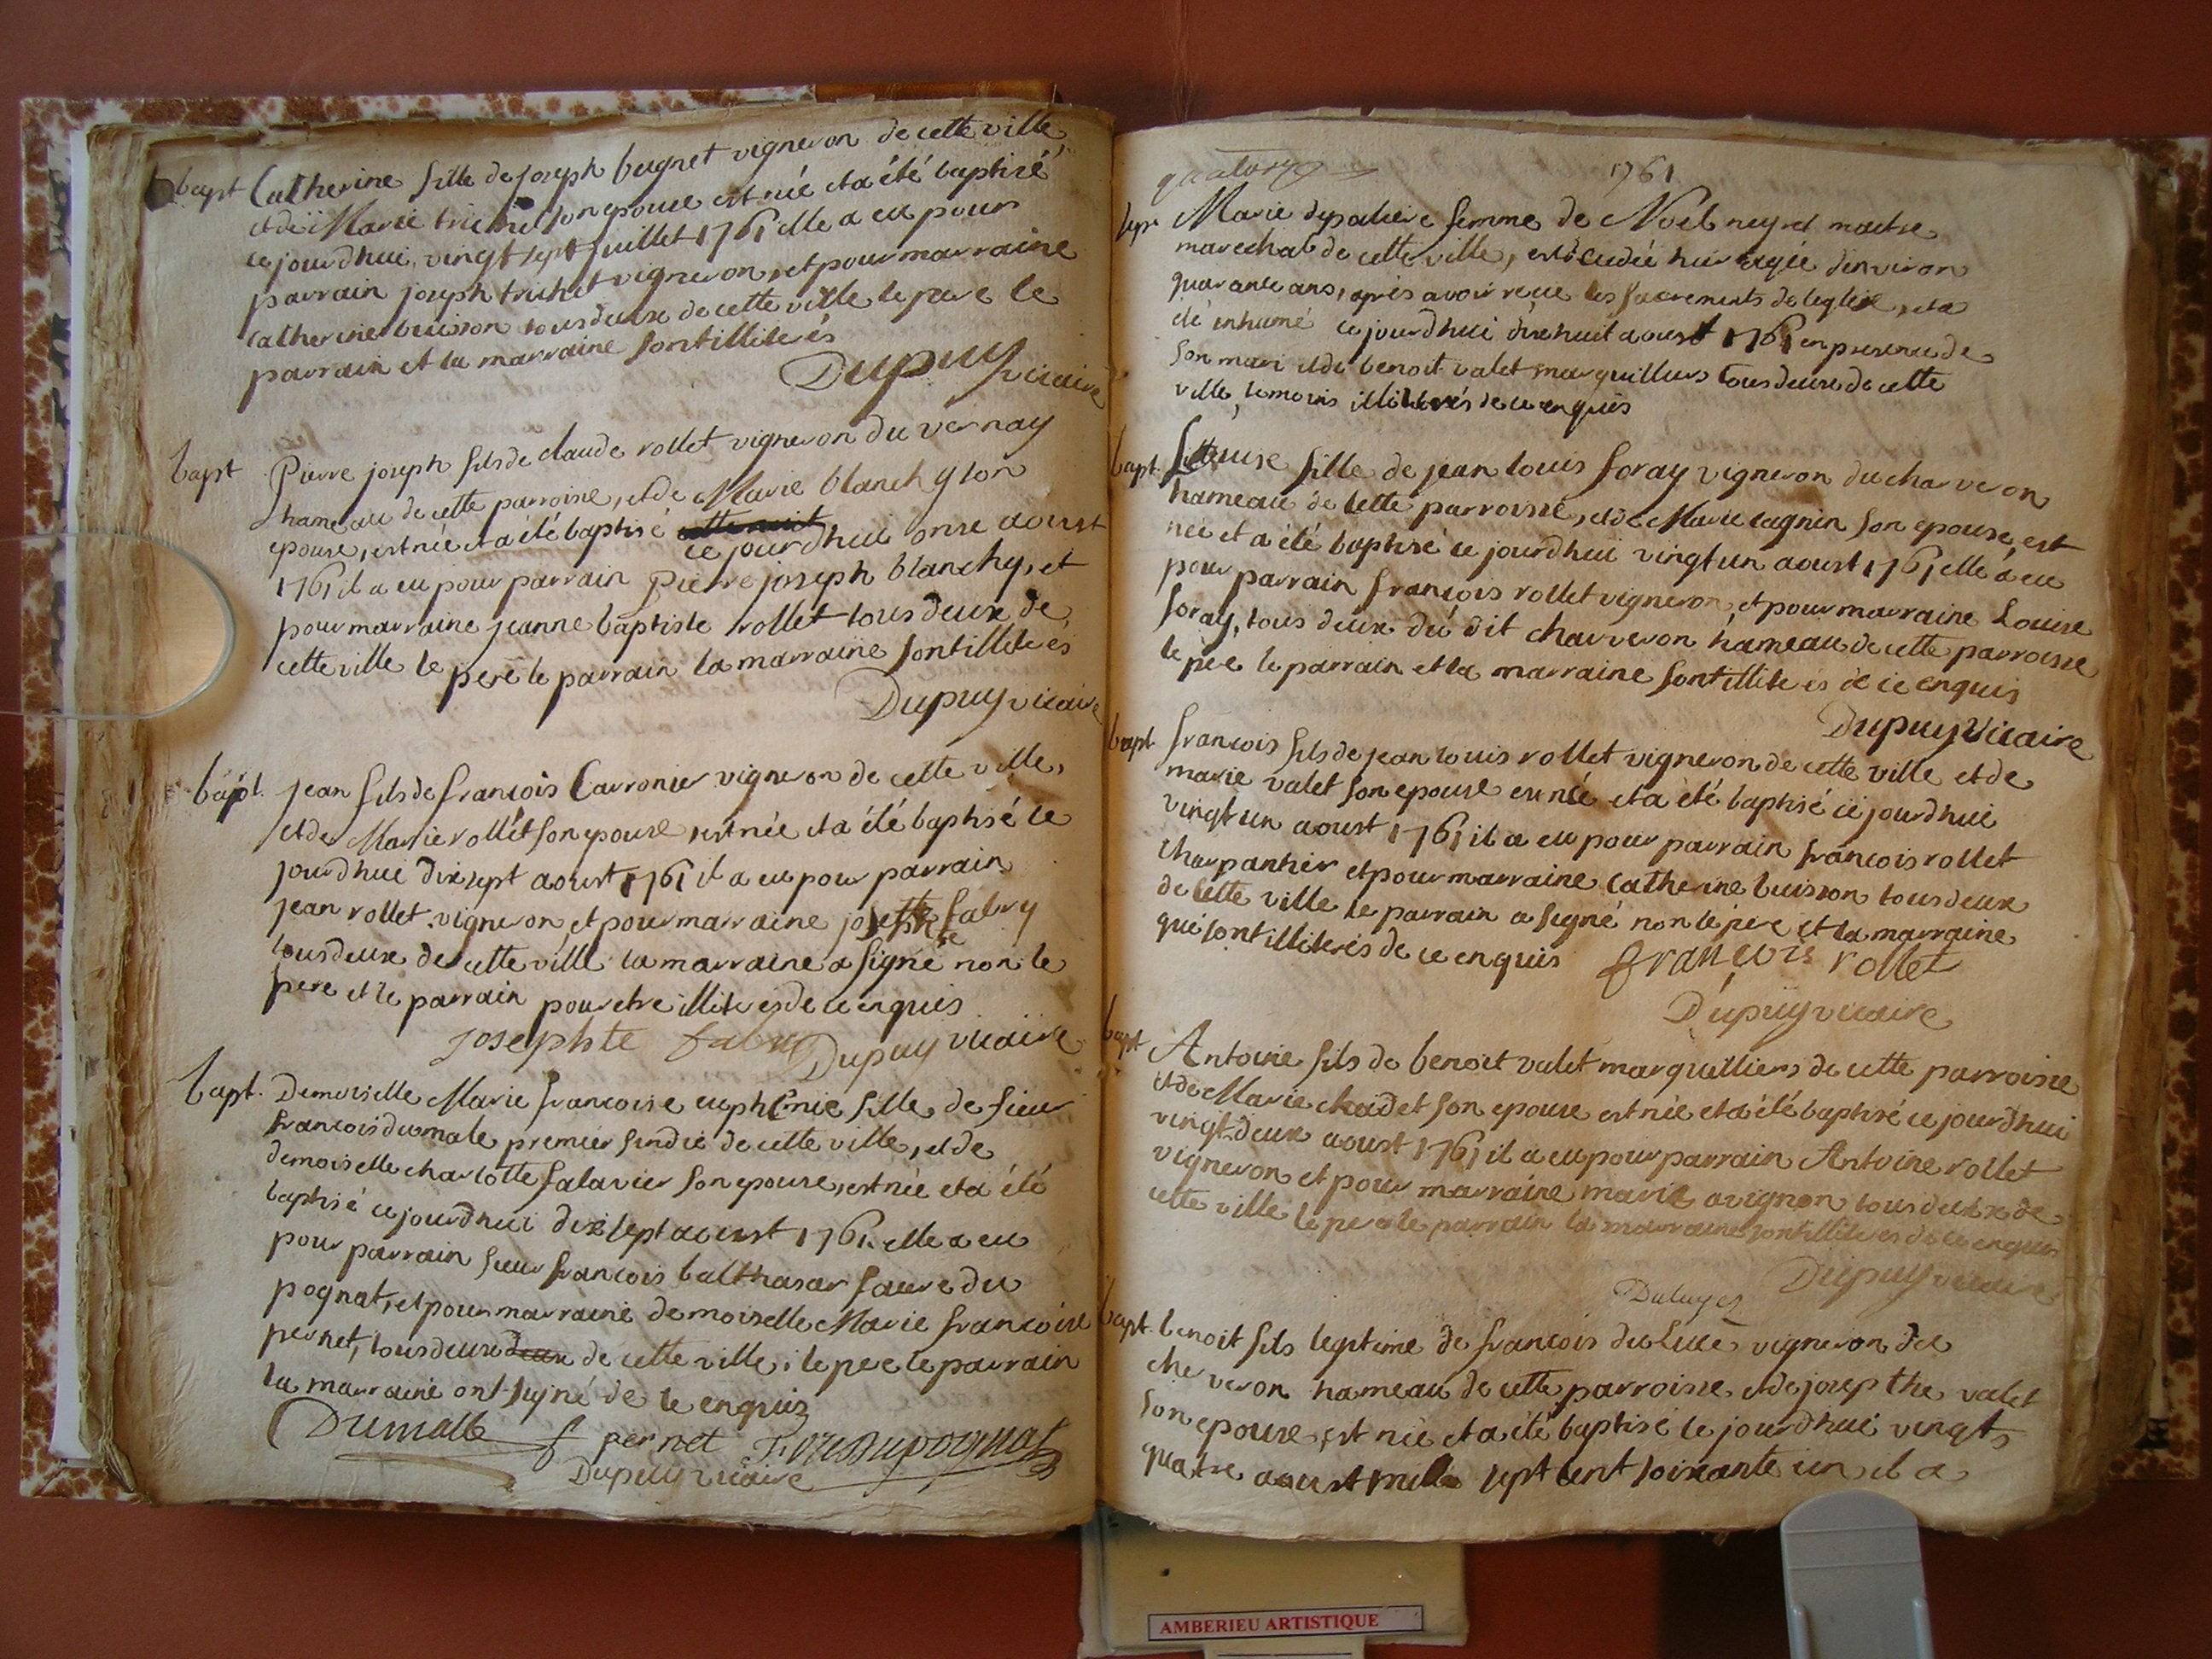 bapt Catherine fille de joseph bugnet vigneron de cette ville
et de Marie trichet son epouse est née et a été baptisé
ce jourdhui vingt sept juillet 1761 elle a eu pour
parrain joseph trichet vigneron, et pour marraine
catherine buisson tous deux de cette ville le pere le
parrain et la marraine sont illiterés
Dupuy vicaire
bapt Pierre joseph fils de claude rollet vigneron du vernay
hameau de cette parroisse, et de Marie blanchy son
epouse, est née et a été baptisé cette nuit ce jourdhui onse aoust
1761 il a eu pour parrain pierre joseph blanchy, et
pour marraine jeanne baptiste rollet tous deux de
cette ville le pere le parrain la marraine sont illiterés
Dupuy vicaire
bapt. jean fils de francois Carronier vigneron de cette ville,
et de Marie rollet son epouse est née et a été baptisé ce
jourdhui dix sept aoust 1761 il a eu pour parrain
jean rollet vigneron et pour marraine josephte fabry
tous deux de cette ville la marraine a signé non le
pere et le parrain pour etre illiterés de ce enquis
josephte fabry Dupuy vicaire
bapt. Demoiselle Marie francoise euphemie fille de sieur
francois dumale premier sindic de cette ville, et de
demoiselle charlotte salavier son epouse, est née et a été
baptisé ce jourdhui dix sept aoust 1761 elle a eu
pour parrain sieur francois balthasar faure du
pognat, et pour marraine demoiselle Marie francoise
pernet, tous deux deux de cette ville; le pere le parrain
la marraine ont signé de ce enquis
Dumalle pernet
Dupuy vicaire
quatorze 1761
sepr Marie depaliere femme de Noel neyret maitre
marechal de cette ville, est decedée hier agée denviron
quarante ans, après avoir reçue les sacrements de leglise, et a
été inhumé ce jourdhui dix huit aoust 1761 en presence de
son mari et de benoit valet marguilliers tous deux de cette
ville, temoins illiterés de ce enquis
bapt. Louise fille de jean louis foray vigneron du charveron
hameau de cette parroisse, et de Marie cagnin son epouse, est
née et a été baptisé ce jourdhui vingt un aoust 1761 elle a eu
pour parrain françois rollet vigneron, et pour marraine Louise
foray, tous deux du dit charveron hameau de cette parroisse
le pere le parrain et la marraine sont illiterés de ce enquis
Dupuy Vicaire
bapt françois fils de jean louis rollet vigneron de cette ville et de
marie valet son epouse est née et a été baptisé ce jourdhui
vingt un aoust 1761 il a eu pour parrain françois rollet
charpantier et pour marraine catherine buisson tous deux
de cette ville le parrain a signé non le pere et la marraine
qui sont illiterés de ce enquis françois rollet
Dupuy vicaire
bapt Antoine fils de benoit valet marguilliers de cette parroisse
et de Marie chaudet son epouse est née et a été baptisé ce jourdhui
vingt deux aoust 1761 il a eu pour parrain Antoine rollet
vigneron et pour marraine marie avignon tous deux de
cette ville le pere le parrain la marraine sont illiterés de ce enquis
Dupuy vicaire
bapt. benoit fils legitime de francois vigneron de
cherveron hameau de cette parroisse et de josephte valet
son epouse est née et a été baptisé le jourdhui vingt
quatre aoust mille sept cent soixante un il a
AMBERIEU ARTISTIQUE